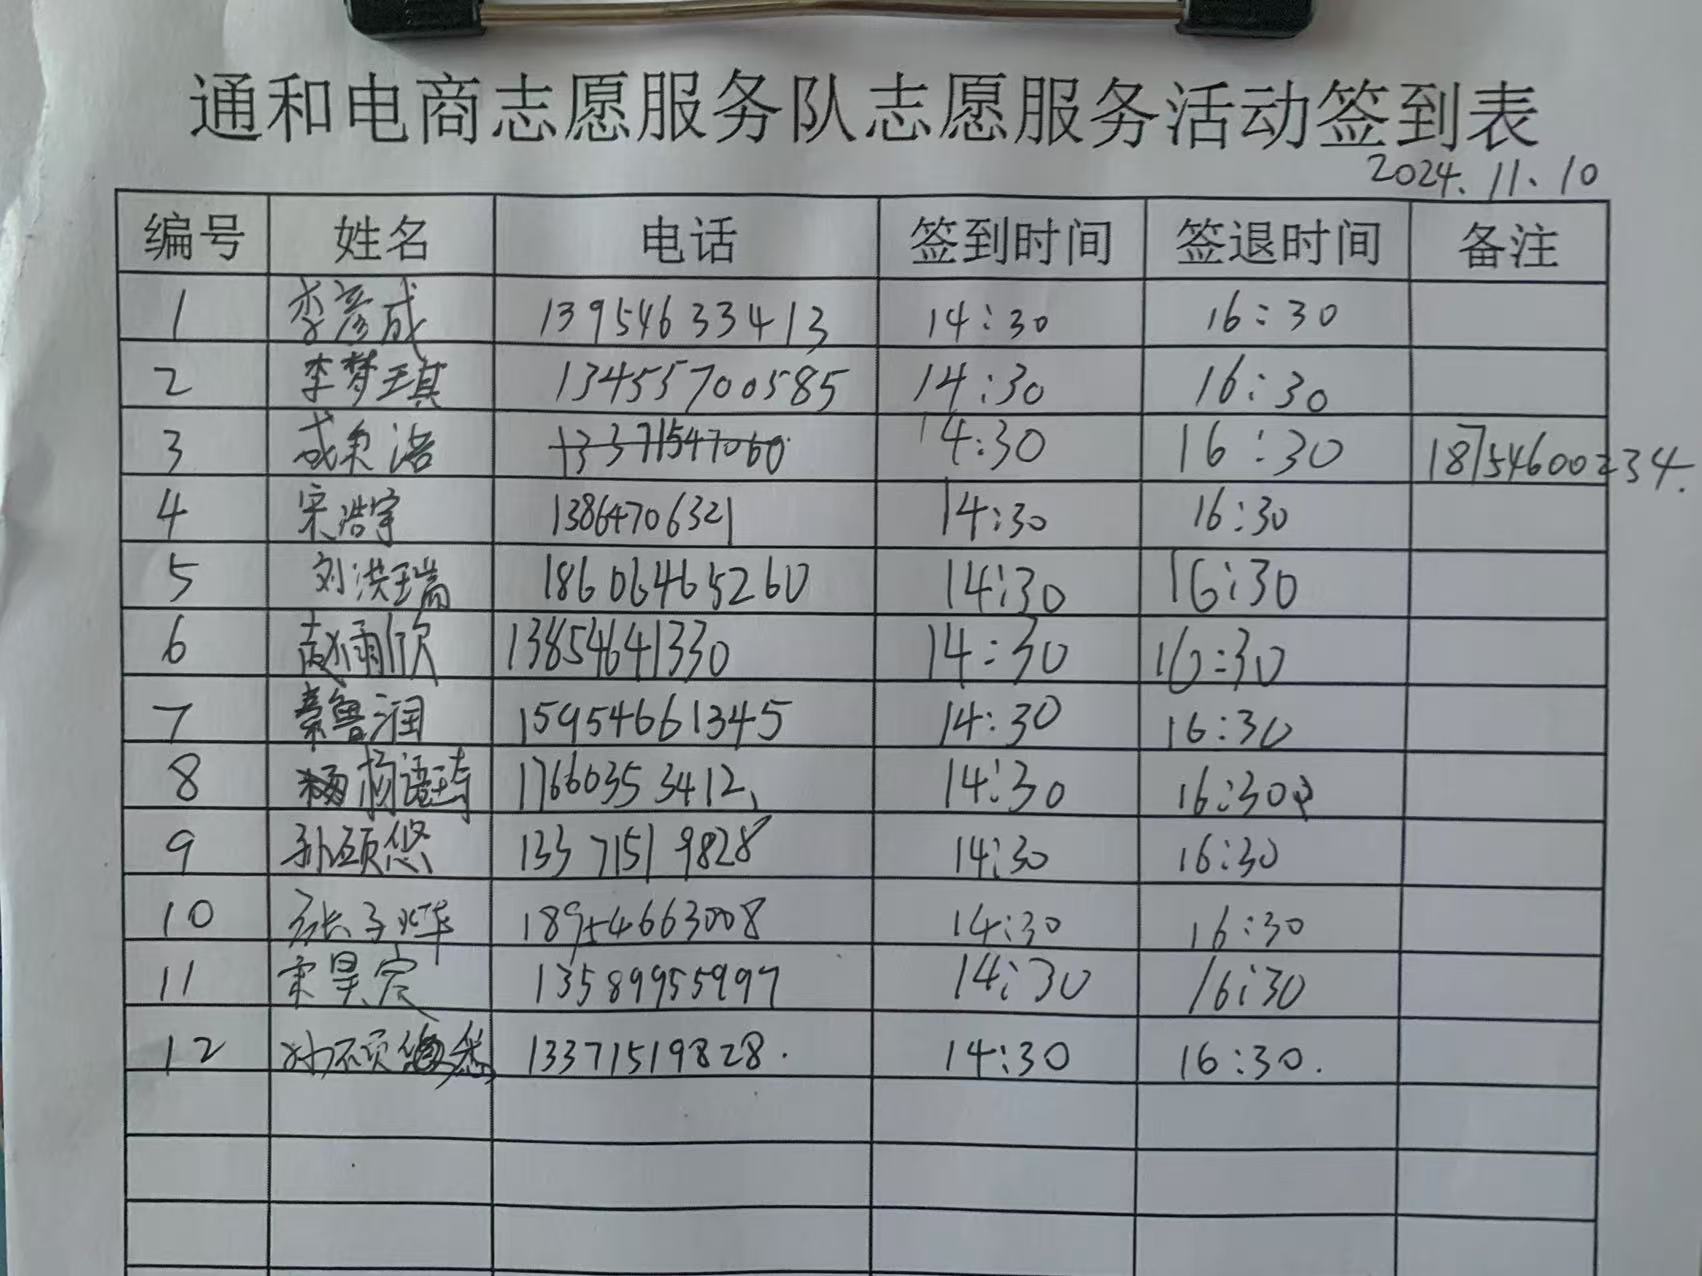 通和电商志愿服务队志愿服务活动签到表
2024.11.10
编号 姓名 电话 签到时间 签退时间 备注
1 李彦成 13954633413 14:30 16:30
2 李梦琪 13455700585 14:30 16:30
3 成奥浩 13371547060 14:30 16:30 18754600234.
4 宋浩宇 13864706321 14:30 16:30
5 刘洪瑞 18606465260 14:30 16:30
6 赵雨欣 13854641330 14:30 16:30
7 秦鲁润 15954661345 14:30 16:30
8 杨语琦 17660353412、 14:30 16:30
9 孙硕悠 13371519828 14:30 16:30
10 张子烨 18954663008 14:30 16:30
11 宋昊宸 13589955997 14:30 16:30
12 孙硕悠 13371519828. 14:30 16:30.